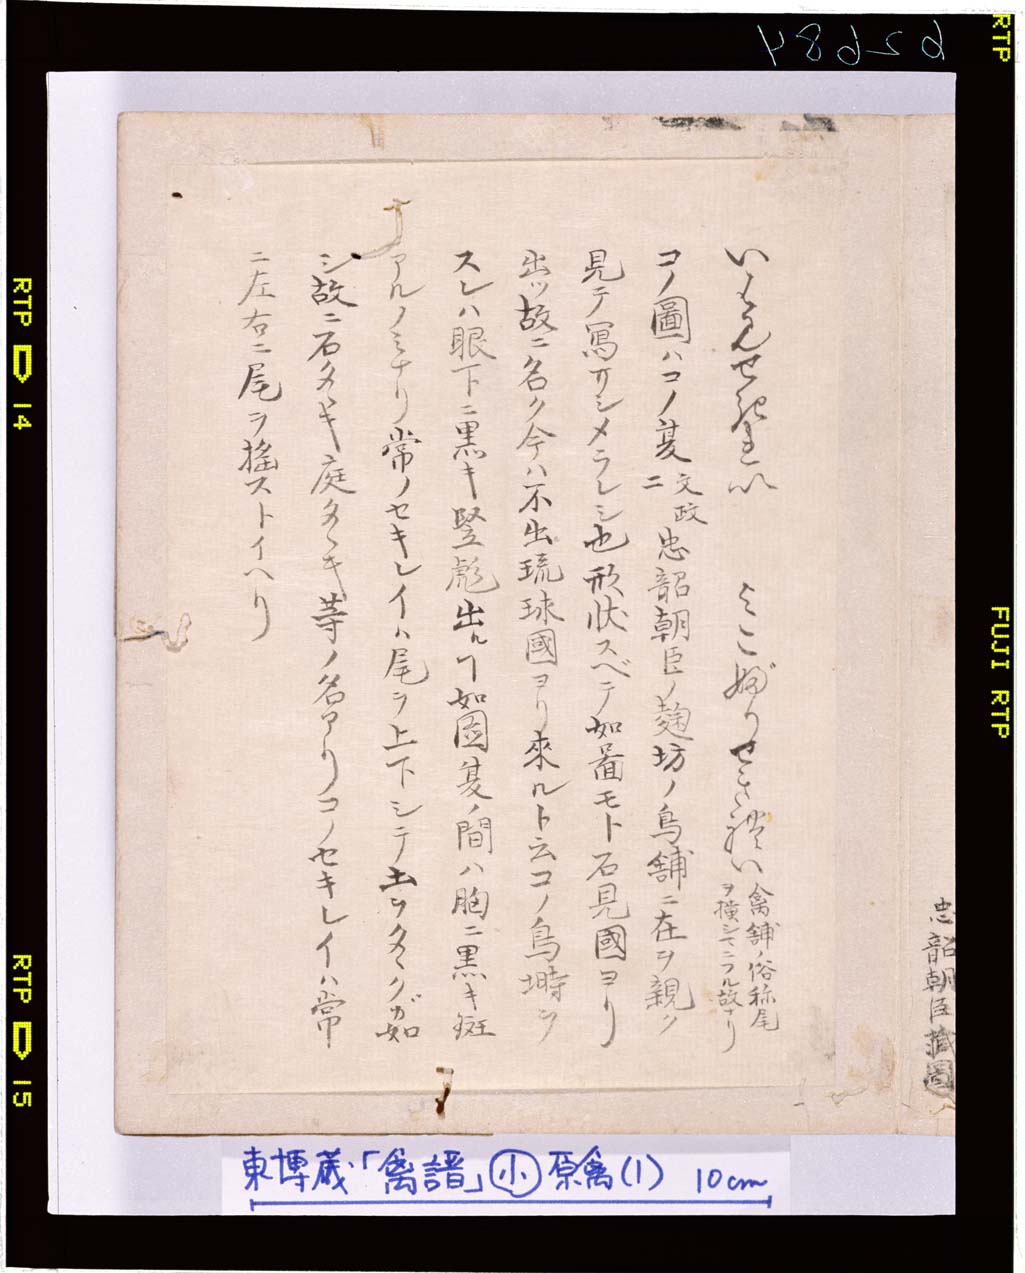 忠韶朝臣藏圖
いはみせきれい　よこぶりせきれい
禽舗ノ俗称尾
ヲ横シテニフル故ナリ
コノ圖ハコノ夏
文政
二
忠韶朝臣ノ麹坊ノ鳥舗ニ在ヲ親ク
見テ寫サシメラレシ也形状スベテ如啚モト石見國ヨリ
出ツ故ニ名ク今ハ不出琉球國ヨリ來ルト云コノ鳥塒ヲ
スレハ眼下ニ黒キ竪彪出ルヿ如圖夏ノ間ハ胸ニ黒キ斑
アルノミナリ常ノセキレイハ尾ヲ上下シテ土ヲタヽクガ如
シ故ニ石タヽキ庭タヽキ等ノ名アリコノセキレイハ常
ニ左右ニ尾ヲ搖ストイヘリ
東博蔵「禽譜」小 原禽(1) 10cm
62684
RTP
FUJI RTP
RTP 14
RTP 15